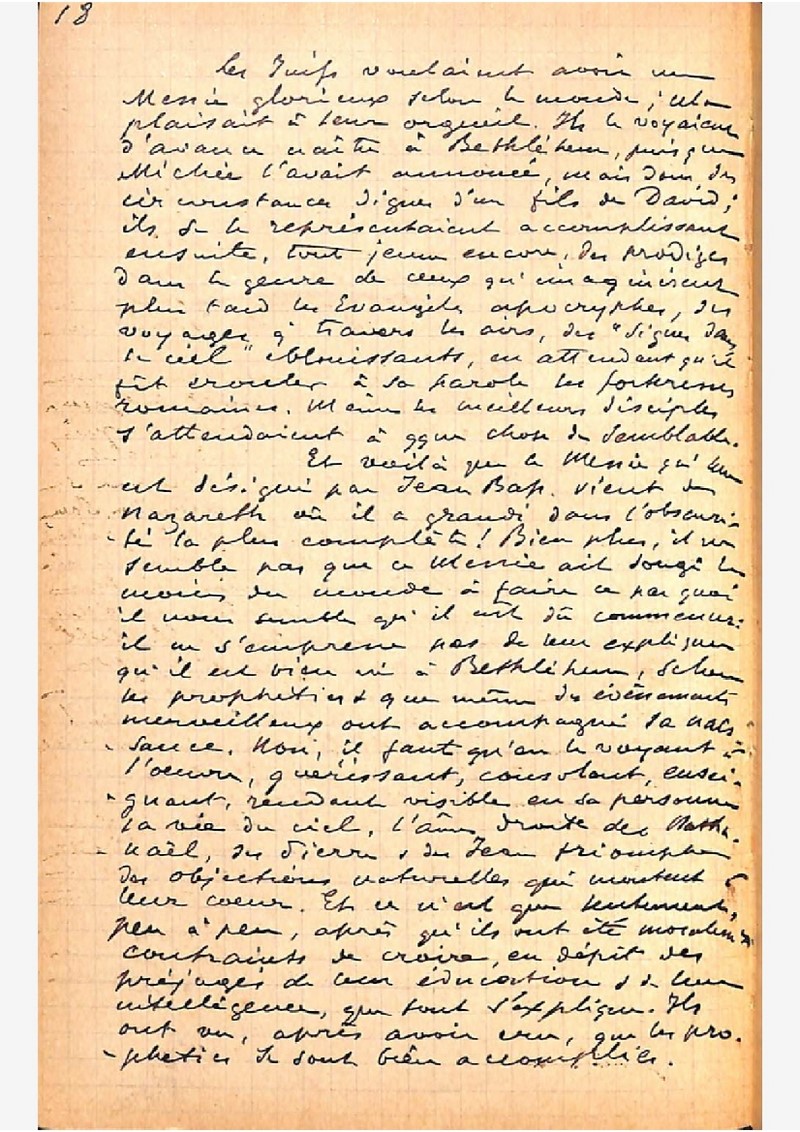 18
Les Juifs voulaient avoir un
Messie glorieux selon le monde; cela
plaisait à leur orgueil. Ils le voyaient
d'avance naître à Bethléhem, puisque
Michée l'avait annoncé, mais dans des
circonstances dignes d'un fils de David;
ils se le représentaient accomplissant
ensuite, tout jeune encore, des prodiges
dans le genre de ceux qu'imaginèrent
plus tard les Evangiles apocryphes, des
voyages à travers les airs, des "signes dans
le ciel" éblouissants, en attendant qu'il
fît crouler à sa parole les forteresses
romaines. Même les meilleurs disciples
s'attendaient à qque chose de semblable.
Et voilà que le Messie qui leur
est désigné par Jean Bap. vient de
Nazareth où il a grandi dans l'obscuri-
té la plus complète! Bien plus, il ne
semble pas que ce Messie ait songé le
moins du monde à faire ce par quoi
il nous semble qu'il eût dû commencer:
il ne s'empresse pas de leur expliquer
qu'il est bien né à Bethléhem, selon
les prophéties & que même des événements
merveilleux ont accompagné sa nais-
sance. Non, il faut qu'en le voyant à
l'oeuvre, guérissant, consolant, ensei-
gnant, rendant visible en sa personne
la vie du ciel, l'âme droite des Natha-
naël, des Pierre & des Jean triomphe
des objections naturelles qui montent à
leur coeur. Et ce n'est que lentement,
peu à peu, après qu'ils ont été moralement
contraints de croire, en dépit des
préjugés de leur éducation & de leur
intelligence, que tout s'explique. Ils
ont vu, après avoir cru, que les pro-
phéties se sont bien accomplies.